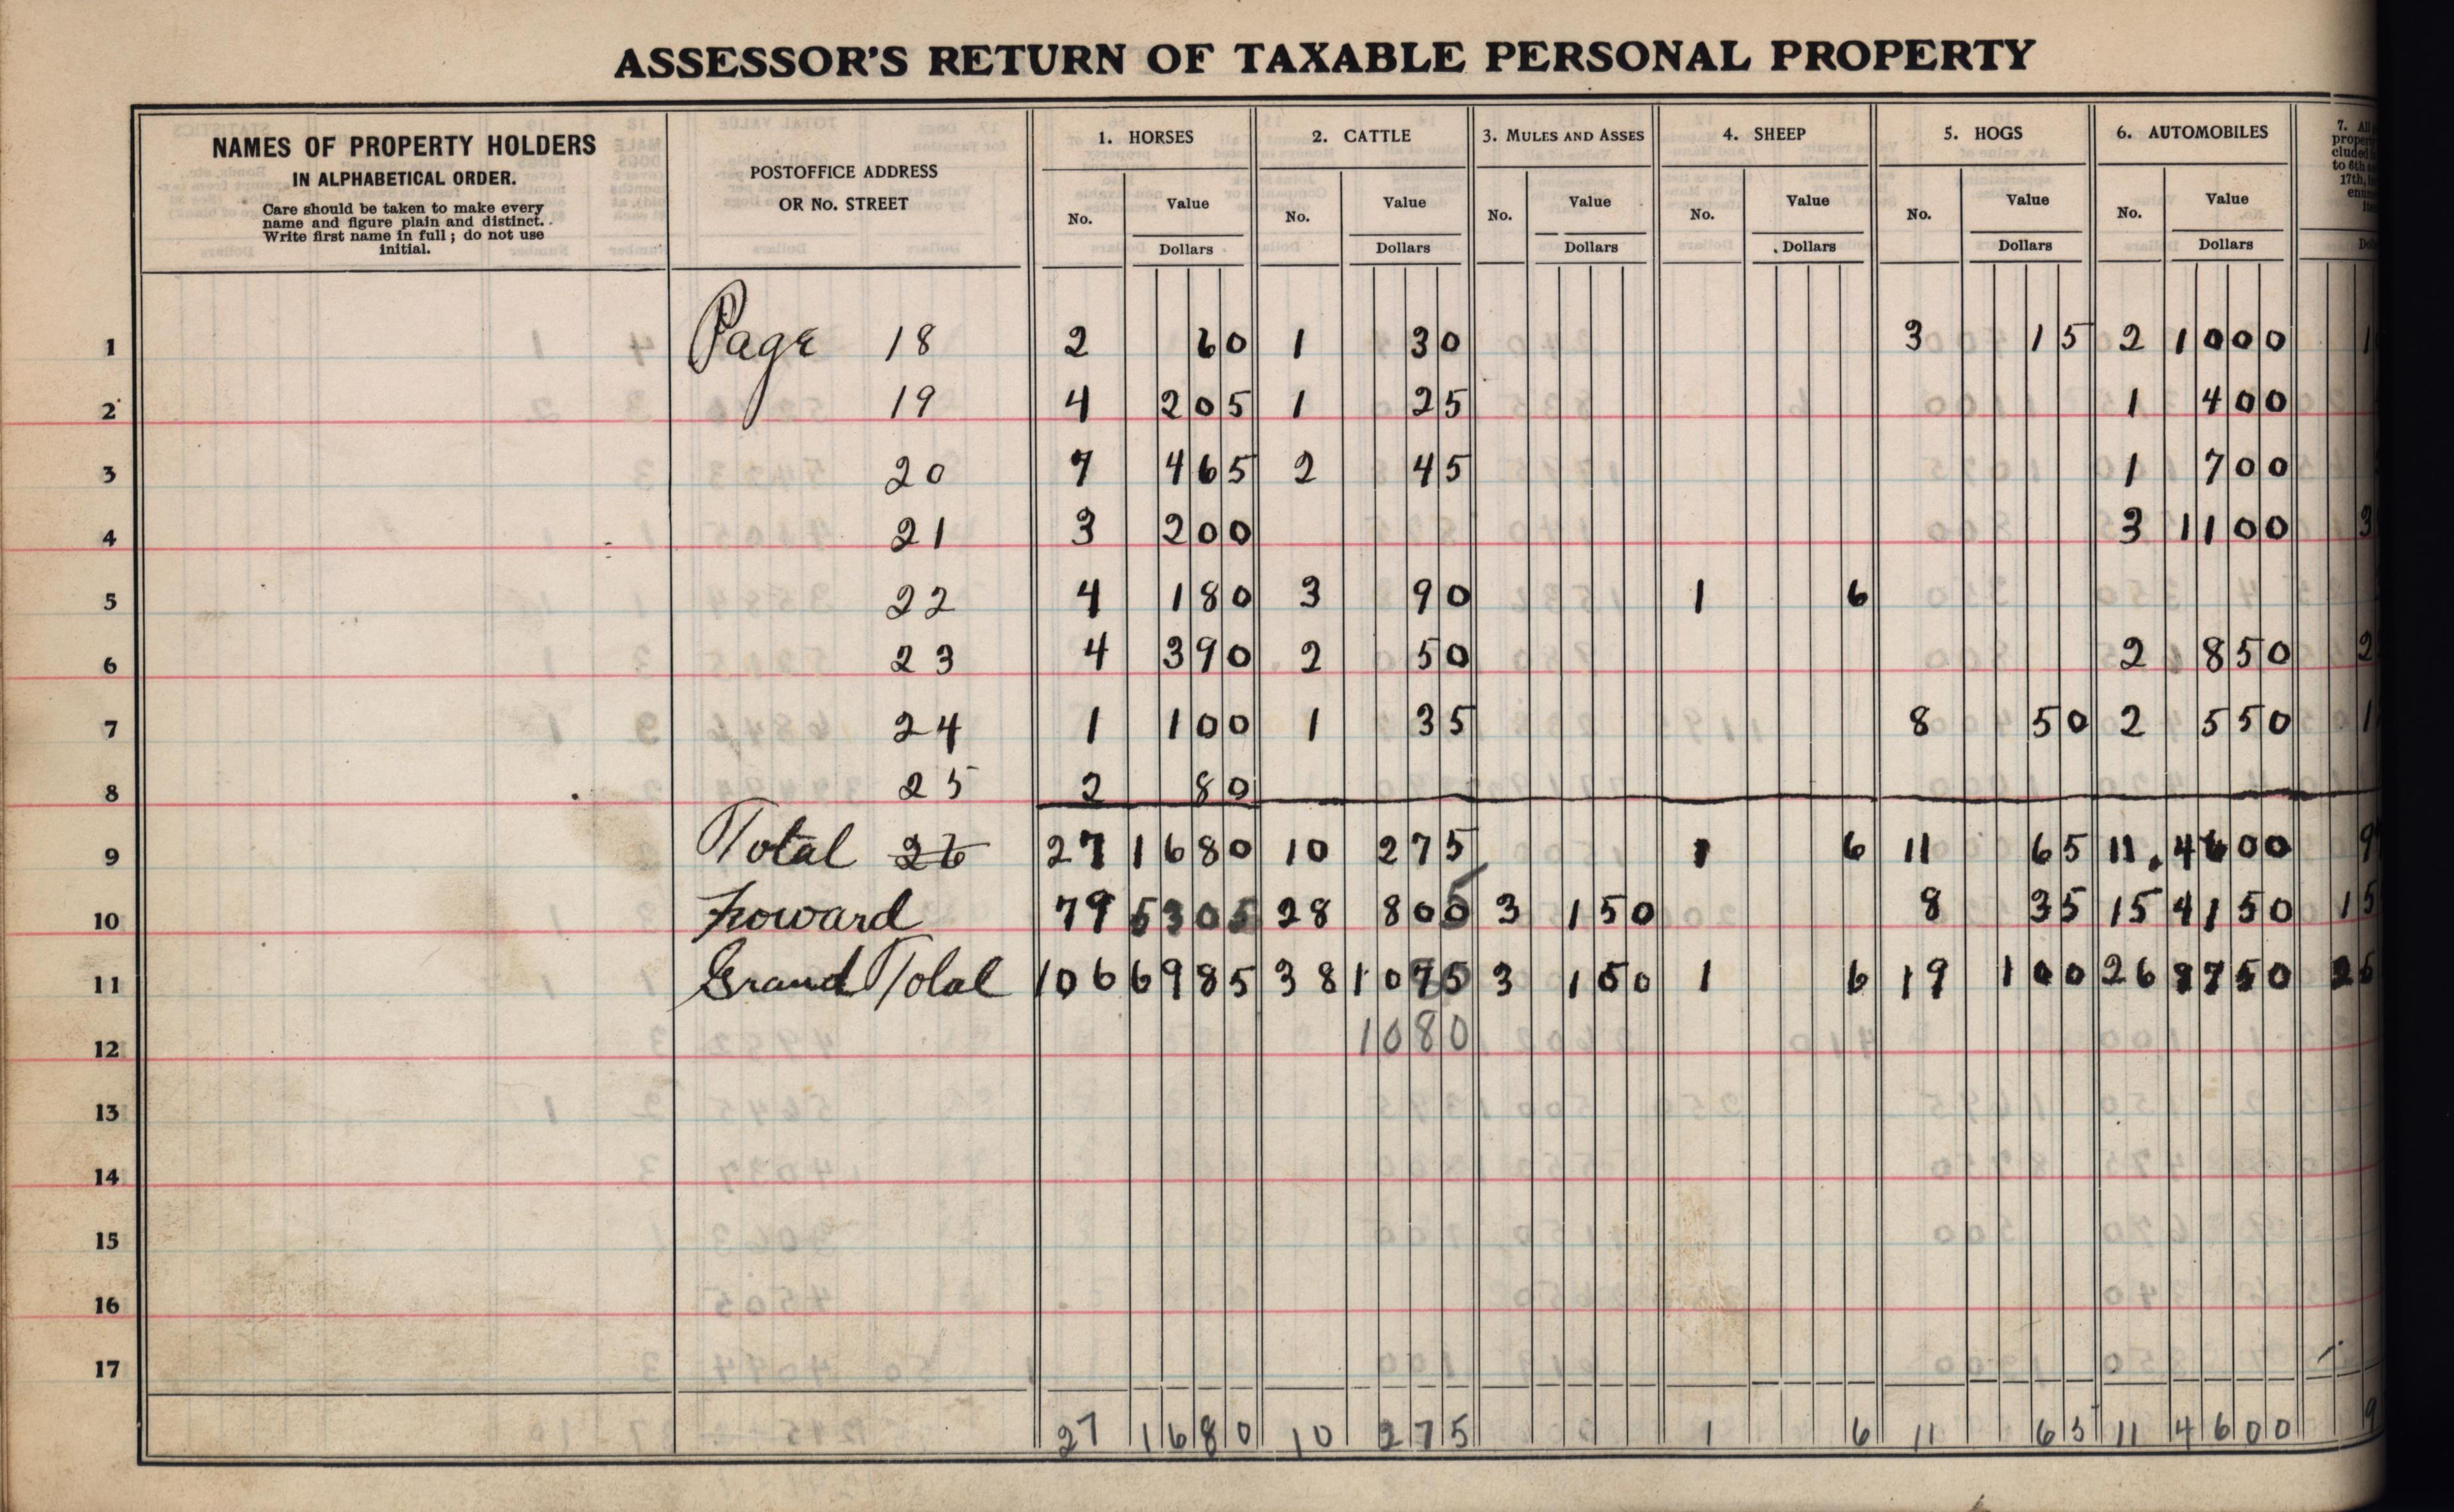 ASSESSOR'S RETURN OF TAXABLE PERSONAL PROPERTY
NAMES OF PROPERTY HOLDERS
IN ALPHABETICAL ORDER.
Care should be taken to make every
name and figure plain and distinct.
Write first name in full; do not use
initial.
POSTOFFICE ADDRESS
OR No. STREET
1. HORSES 2. CATTLE 3. MULES AND ASSES 4. SHEEP 5. HOGS 6. AUTOMOBILES 7.
No. Value No. Value No. Value No. Value No. Value No. Value
Dollars Dollars Dollars Dollars Dollars Dollars
1 Page 18 2 60 1 30 3 15 2 1000 1
2 19 4 205 1 25 1 400
3 20 7 465 2 45 1 700
4 21 3 200 3 1100 3
5 22 4 180 3 90 1 6
6 23 4 390 2 50 2 850 2
7 24 1 100 1 35 8 50 2 550 1
8 25 2 80
9 Total 26 27 1680 10 275 1 6 11 65 11 4600 9
10 Forward 79 5305 28 805 3 150 8 35 15 4150 15
11 Grand Total 106 6985 38 1075 3 150 1 6 19 100 26 8750
12 1080
13
14
15
16
17
27 1680 10 275 1 6 11 65 11 4600 9